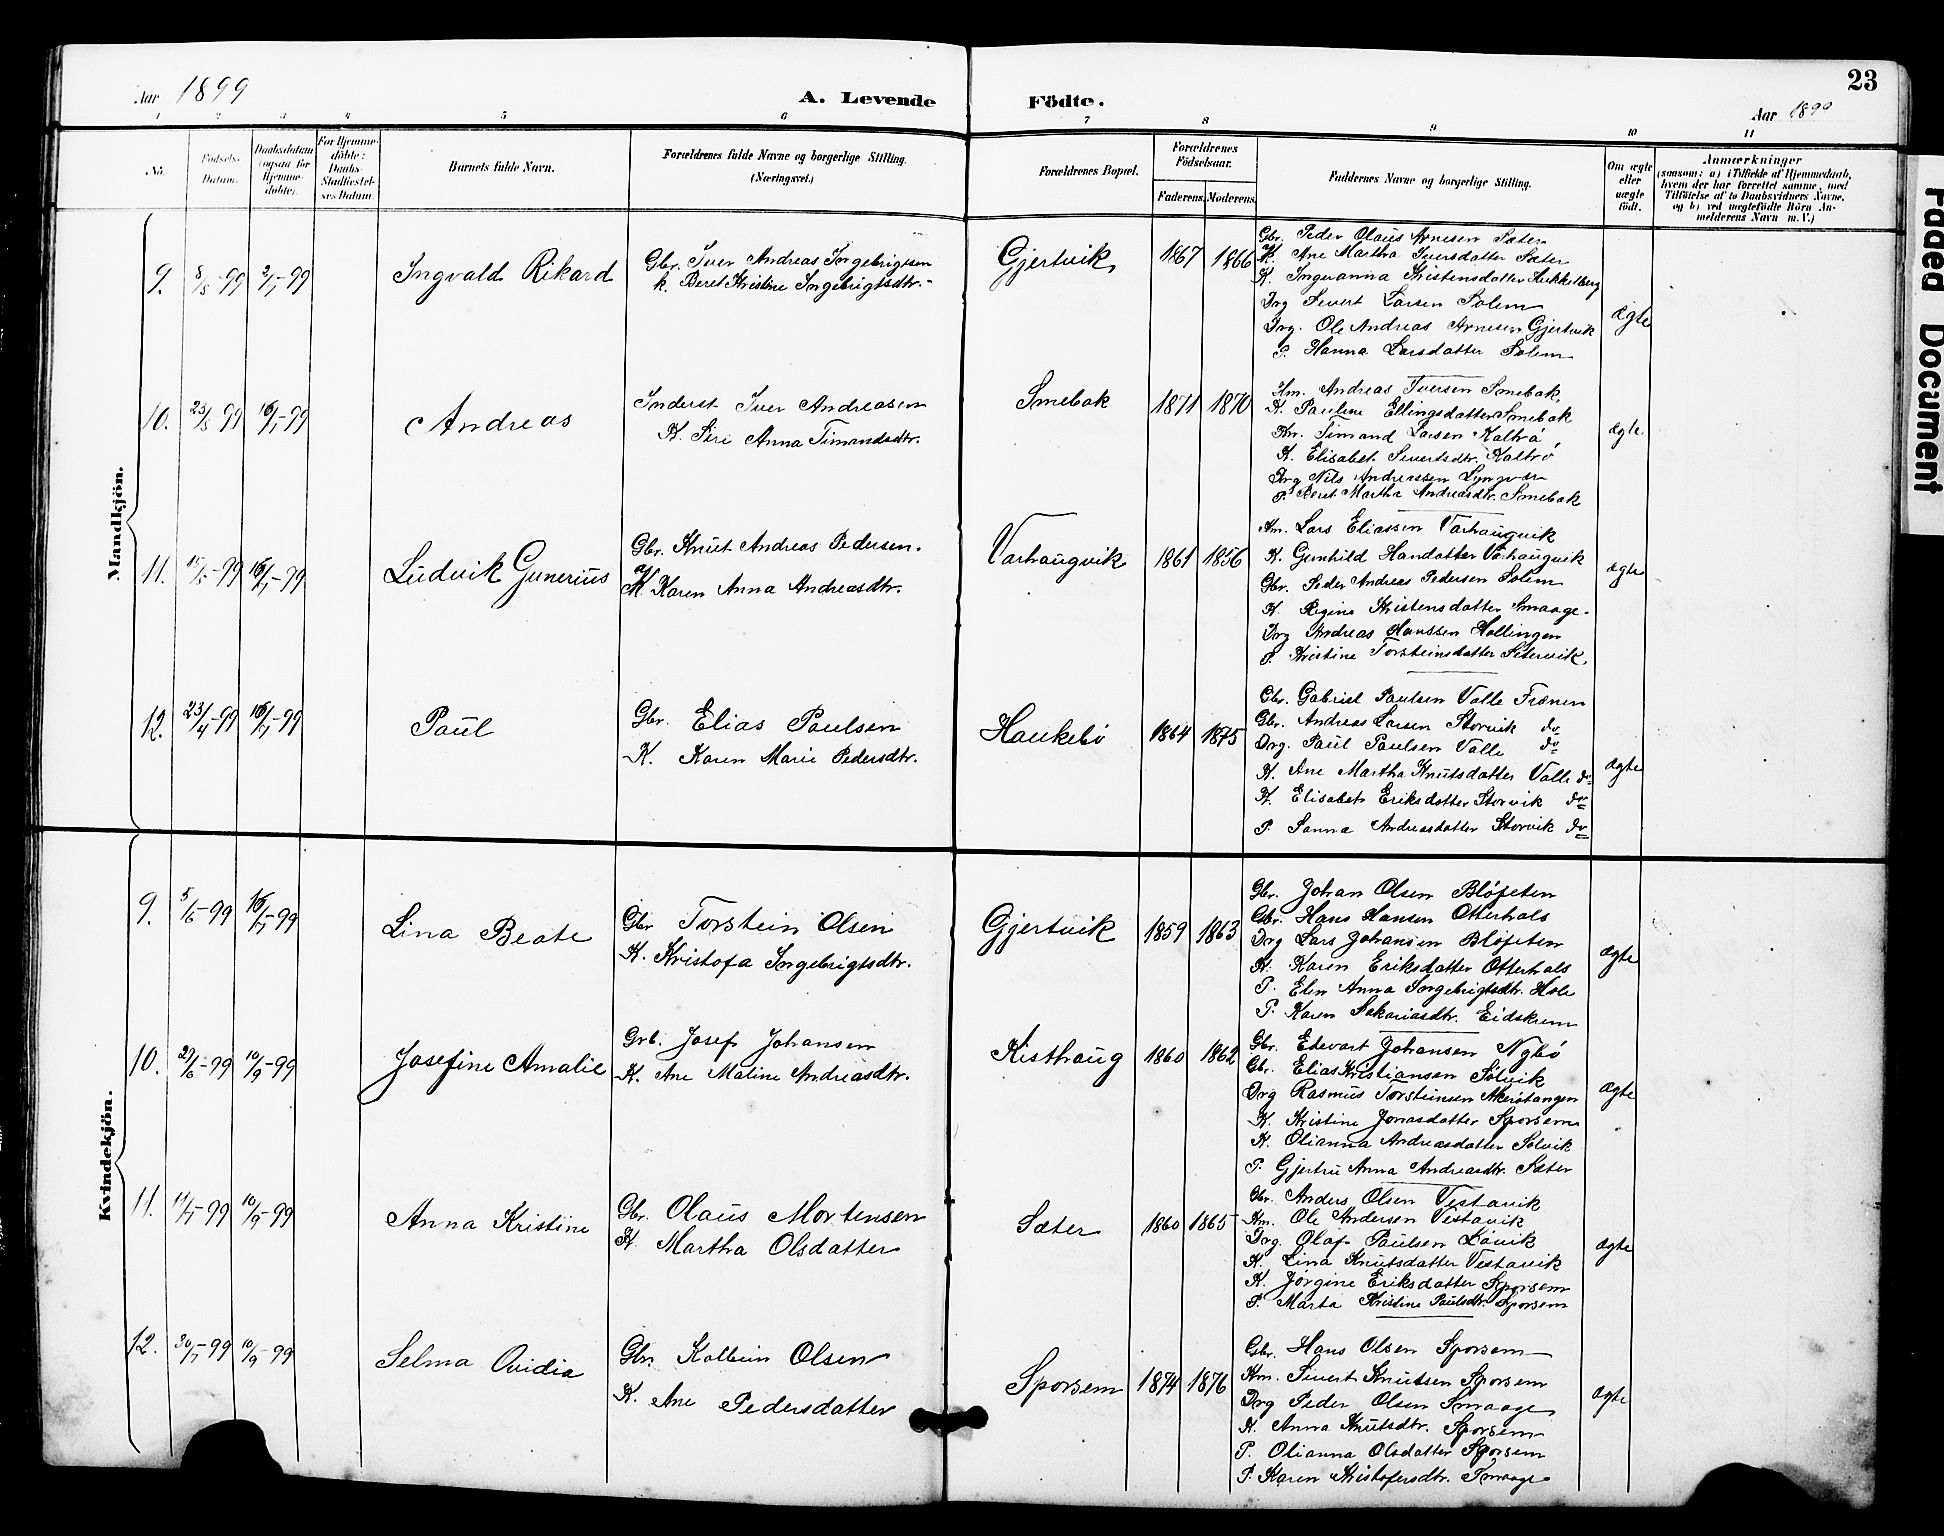 Aar 1899
A. Levende Födte.
23
Aar 1899
1 2 3 4 5 6 7 8 9 10 11
No.
Födsels-Datum.
Daabsdatum (ogsaa for Hjemme-døbte).
For Hjemme-döbte: Daabs-Stadfæstel-ses Datum.
Barnets fulde Navn.
Forældrenes fulde Navne og borgerlige Stilling. (Næringsvei.)
Forældrenes Bopæl.
Forældrenes Födselsaar.
Faderens. Moderens.
Faddernes Navne og borgerlige Stilling.
Om ægte eller uægte födt.
Anmærkninger
(saasom: a) i Tilfælde af Hjemmedaab, hvem der har forrettet samme, med Tilföielse af to Daabsvidners Navne. og b) ved uægtefödte Börn Anmelderens Navn m. V.)
Mandkjön.
9. 8/5-99 2/7-99 Ingvald Rikard
Gbr. Iver Andreas Ingebrigtsen
K. Beret Kristine Ingebrigtsdtr.
Gjertvik 1867 1866
Gbr. Peder Olaus Arnesen Sæter
K. Ane Martha Iversdatter Sæter
K. Ingeranna Kristensdatter
Drg Sivert Larsen Solem
Drg. Ole Andreas Arnesen Gjertvik
P. Hanna Larsdatter Solem
ægte
10. 23/5 99 16/7-99 Andreas
Inderst Iver Andreasen
K. Siri Anna Timandsdtr.
Smebak 1871 1870
Km. Andreas Iversen Smebak
K. Pauline Ellingsdatter Smebak
Km. Timand Larsen Kaltrø
K. Elisabet Sivertsdtr. Kaltrø
Drg Nils Andreassen
P. Beret Martha Andreasdtr. Smebak
ægte
11. 99 16/7-99 Ludvik Gunerius
Gbr. Knut Andreas Pedersen.
og
K. Karen Anna Andreasdtr.
Varhaugvik 1861 1856
Km. Lars Eliassen Varhaugvik
K. Gunhild Hansdatter Varhaugvik
Gbr. Peder Andreas Pedersen Solem
K. Regine Kristensdatter Smaage.
Drg Andreas Hanssen Hollingen
P. Kristine Torsteinsdatter Setervik
ægte
12. 23/4-99 16/7-99 Paul
Gbr. Elias Paulsen
K. Karen Marie Pedersdtr.
Haukebø 1864 1875
Gbr. Gabriel Paulsen Valle Frænen
Gbr. Andreas Larsen Storvik do
Drg. Paul Paulsen Valle do
K. Ane Martha Knutsdatter Valle do
K. Elisabet Eriksdatter Storvik do
P. Sanna Andreasdatter Storvik do
ægte
Kvindekjön.
9. 5/6-99 16/7-99 Lina Beate
Gbr Torstein Olsen
K. Kristofa Ingebrigtsdtr.
Gjertvik 1859 1863
Gbr. Johan Olsen Bløjeten
Gbr. Hans Hansen Otterhals
Drg Lars Johansen Bløjeten
K. Karen Eriksdatter Otterhals
P. Elen Anna Ingebrigtsdtr. Hole
P. Karen Sakariasdtr. Eidskrem
ægte
10. 29/6-99 10/9-99 Josefine Amalie
Grb. Josef Johansen
K. Ane Maline Andreasdtr.
Kisthaug 1860 1862
Gbr. Edevart Johansen Nybø
Gbr. Elias Kristiansen Solvik
Drg Rasmus Torsteinsen Akerøtangen
K. Kristine Jonasdatter Sporsem
K. Olianna Andreasdatter Solvik
P. Gjertru Anna Andreasdtr. Sæter
ægte
11. 11/7-99 10/9-99 Anna Kristine
Gbr. Olaus Mortensen
K. Martha Olsdatter
Sæter 1860 1865
Gbr. Anders Olsen Vestavik
Km. Ole Andersen Vestavik
Drg. Olaf Paulsen Løvik
K. Lina Knutsdatter Vestavik
K. Jørgine Eriksdatter Sporsem
P. Marta Kristine Paulsdtr. Sporsem
ægte
12. 30/7-99 10/9-99 Selma Ovidia
Gbr. Kolbein Olsen
K. Ane Pedersdatter
Sporsem 1874 1876
Gbr. Hans Olsen Sporsem
Km. Sivert Knutsen Sporsem
Drg Peder Olsen Smaage
K. Anna Knutsdtr. Sporsem
P. Olianna Olsdatter Sporsem
P. Karen Kristofersdtr. Smaage
ægte
Faded Document